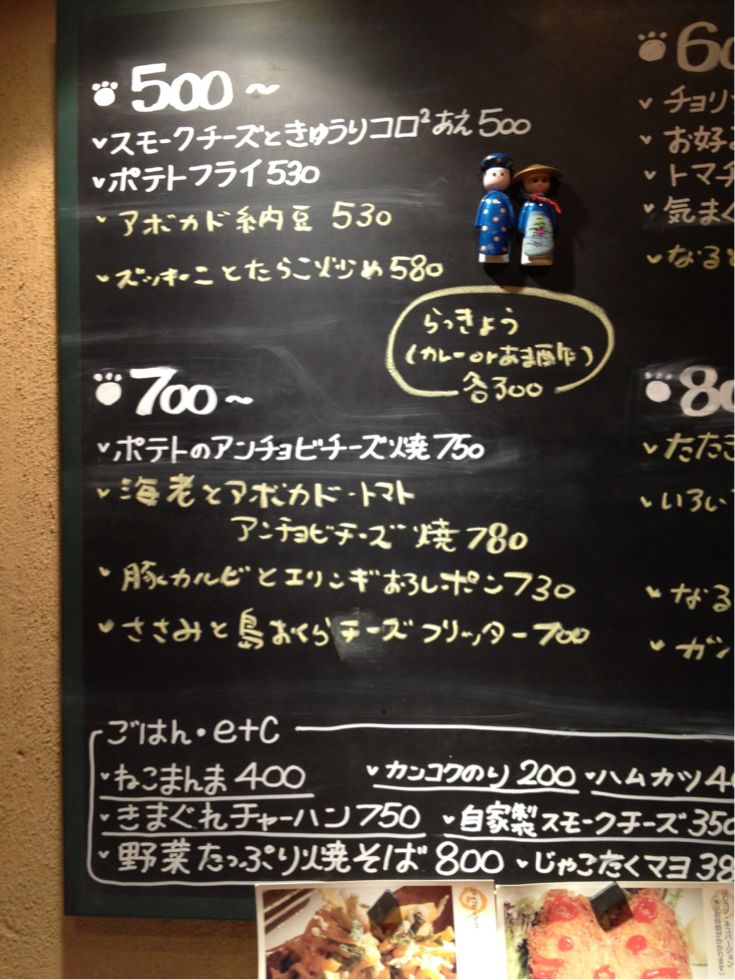 500～
スモークチーズときゅうりコロ²あえ 500
ポテトフライ 530
アボカド納豆 530
ズッキーニとたらこ炒め 580
らっきょう
(カレー or あま酢)
各300
700～
ポテトのアンチョビチーズ焼 750
海老とアボカド・トマト
アンチョビチーズ焼 780
豚カルビとエリンギおろしポン 730
ささみと島おくらチーズフリッター 700
60
チョリ
お好
トマ
気まぐ
なると
80
たたき
いろい
なる
ガン
ごはん・etc
ねこまんま 400
カンコクのり 200
ハムカツ 4
きまぐれチャーハン 750
自家製スモークチーズ 350
野菜たっぷり焼そば 800
じゃこたくマヨ 38